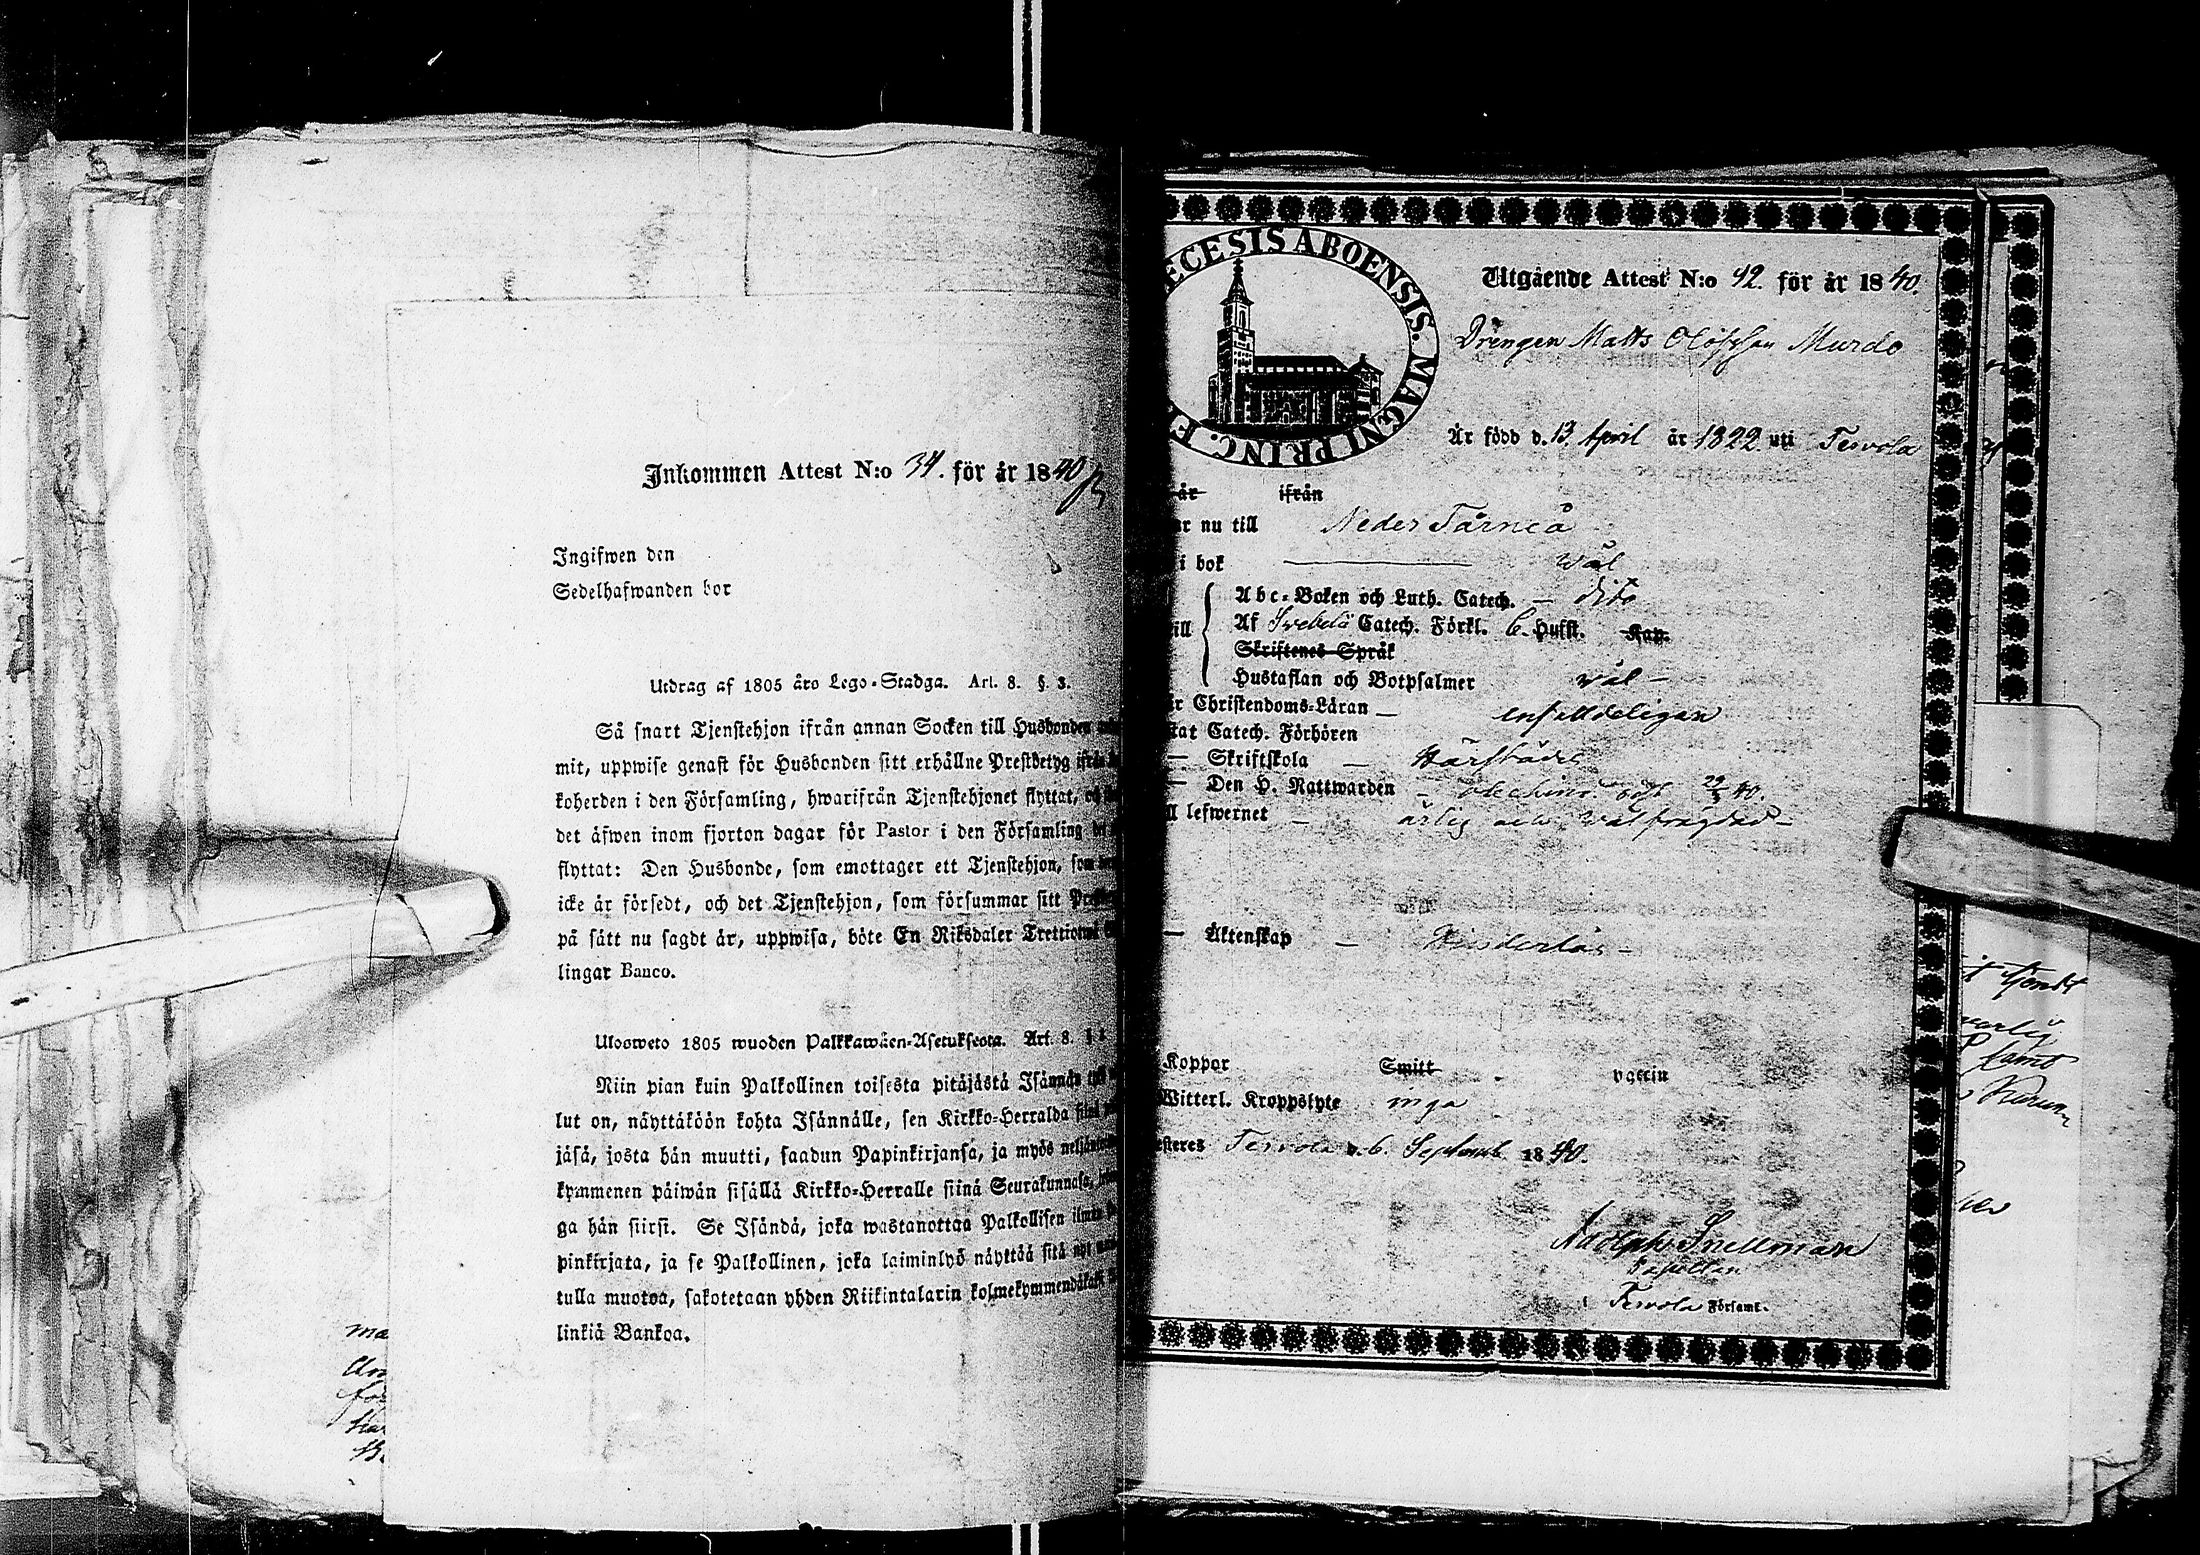 Inkommen Attest N:o 34. för år 1840
Ingifwen den
Sedelhafwanden bor
Utdrag af 1805 års Lego-Stadga. Art. 8. §. 3.
Så snart Tjenstehjon ifrån annan Socken till Husbonden
mit, uppwise genast för Husbonden sitt erhållne Prestbetyg ifrån
koherden i den Församling, hwarifrån Tjenstehjonet flyttat,
det äfwen inom fjorton dagar för Pastor i den Församling
flyttat: Den Husbonde, som emottager ett Tjenstehjon, som
icke är försedt, och det Tjenstehjon, som försummar sitt
på sätt nu sagdt är, uppwisa, böte En Riksdaler Trettiotwå
lingar Banco.
Ulosweto 1805 wuoden Palkkawäen-Asetuksesta. Art. 8. §
Niin pian kuin Palkollinen toisesta pitäjästä Isännän
lut on, näyttäköön kohta Isännälle, sen Kirkko-Herralda
jäsä, josta hän muutti, saadun Papinkirjansa, ja myös
kymmenen päiwän sisällä Kirkko-Herralle siinä Seurakunnasa,
ga hän siirsi. Se Isändä, joka wastanottaa Palkollisen ilman
pinkirjata, ja se Palkollinen, joka laiminlyö näyttää sitä nyt
tulla muotoa, sakotetaan yhden Riikintalarin kolmekymmendäkaksi
linkiä Bankoa.
ECESIS ABOENSIS. MAGNI PRINC. F
Utgående Attest N:o 42. för år 1840.
Drengen Matts Olofsson Murdo
Är född d. 13. April år 1822. uti Terwola
är ifrån
nu till Neder Tårneå
i bok wäl
Abc-Boken och Luth. Catech. – dito
Af Swebelii Catech. Förkl. 6. Hufst. Kap.
Skriftenes Språk
Hustaflan och Botpsalmer wäl –
Christendoms-Läran – enfalldeligen
Catech. Förhören
– Skriftskola – Härstädes
– Den H. Nattwarden – 40.
lefwernet – ärlig och wälfrägdad –
– Äktenskap – Hinderlös –
Koppor Smitt vaccin
Witterl. Kroppslyte inga
Terwola d. 6. Septemb. 1840.
Adolph Snellman
Capellan
i Terwola Församl.